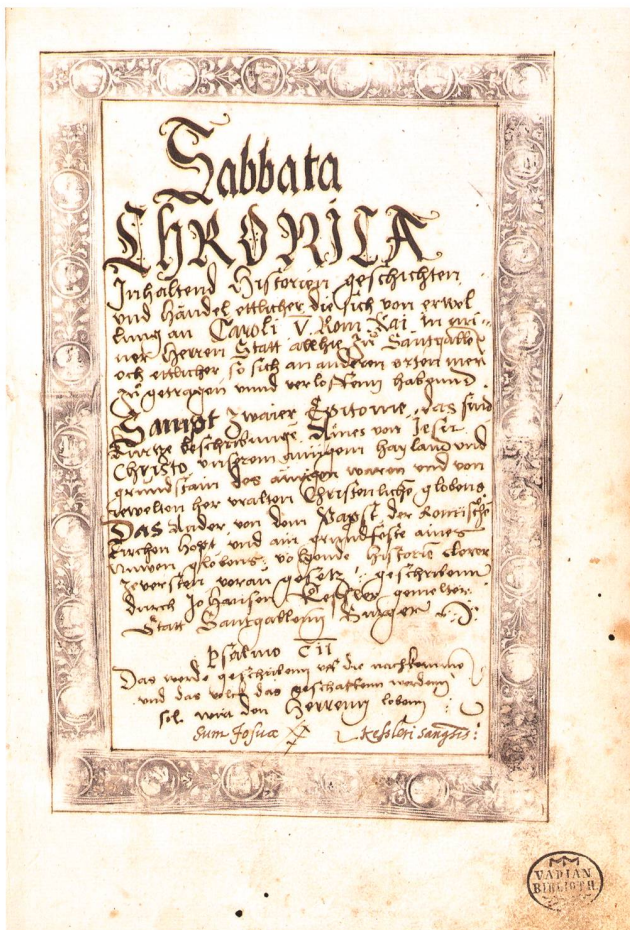 Sabbata
CHRONICA
Inhaltend Historien geschichten
und Händel ettlicher die sich von erwel
lung an Caroli V. Rom. Kai. in mi
ner Herren Statt allhie zů Santgallē
och ettlicher so sich an anderen orten mer
zů getragen unnd verloffenn habennd
Sampt zwaier Epitome, das sind
kurtze beschribunge. Aines von Jesu
Christo unserem ainigem hayland und
grundstain des ainigen waren und von
jewelten her uralten Christenliche globens.
Das Ander von dem Papst der Romische
kirchen hopt, und ain grundfeste aines
nuwen globens: volgende historie
zeversten voran gesetz: geschribenn
durch Johansen Kessler gemelter
Statt Santgallenn Burger
Psalmo CII
Das werde geschribenn uff die nachkommē
und das volck das geschaffenn werdenn
sol wird den Herrenn loben
Sum Josuæ Kessleri Sangtis:
VADIAN
BIBLIOTH.